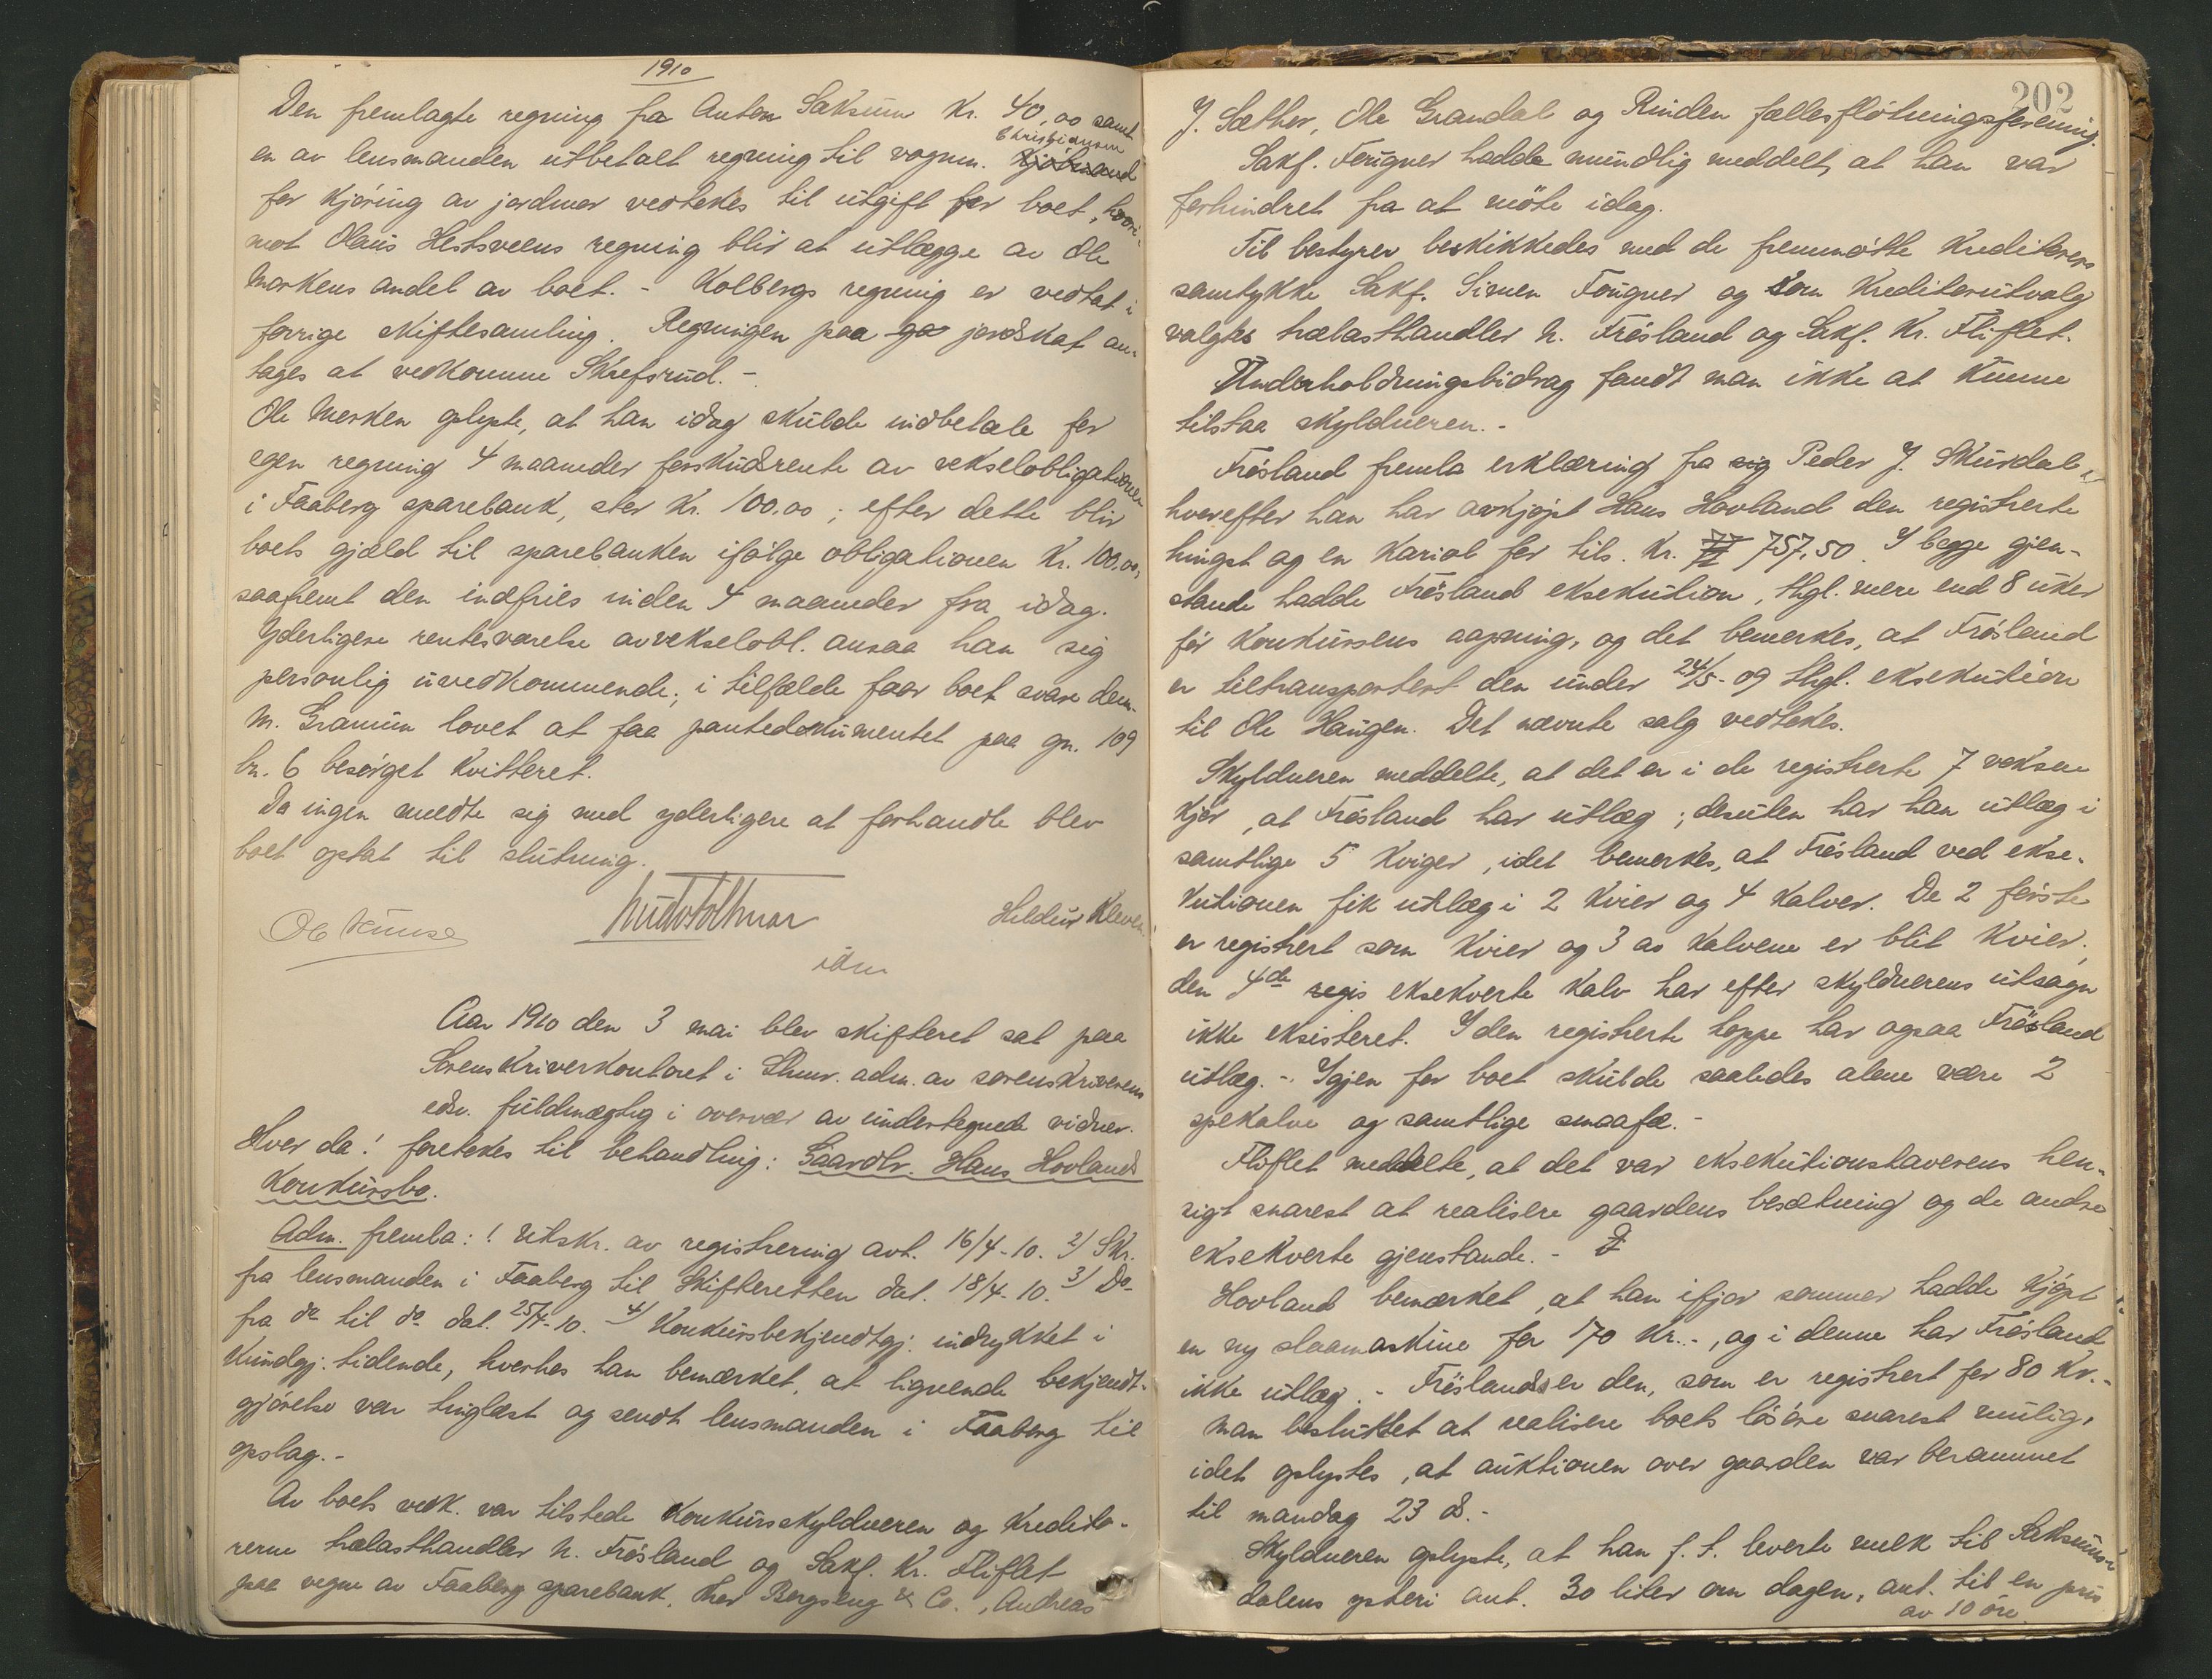 1910
Den fremlagte regning fra Anton Saksum Kr. 40,00 samt
en av lensmanden utbetalt regning til vognm. Kjøstrand Christiansen
for kjøring av jordmor vedtokes til utgift for boet, hvori-
mot Olaus Hestsveens regning blir at utlægge av Ole
Morkens andel av boet. - Kolbergs regning er vedtat i
forrige skiftesamling. Regningen paa ga jordskat an-
tages at vedkomme Skrefsrud. -
Ole Morken oplyste, at han idag skulde indbetale for
egen regning 4 maaneder forskudrente av vekselobligationen
i Faaberg sparebank, stor Kr. 100.00; efter dette blir
boets gjæld til sparebanken ifølge obligationen Kr. 100.00,
saafremt den indfries inden 4 maaneder fra idag.
Yderligere rentesvarelse av vekselobl. ansaa han sig
personlig uvedkommende; i tilfælde faar boet svare dem.
M. Granum lovet at faa pantedokumentet paa gn. 109
bn. 6 besørget kvitteret.
Da ingen meldte sig med yderligere at forhandle blev
boet optat til slutning.
Hildur Kleven
idm
Aar 1910 den 3 mai blev skifteret sat paa
Sorenskriverkontoret i Lhmr. adm. av sorenskriverens
edsv. fuldmægtig i overvær av undertegnede vidner.
Hvor da! foretokes til behandling: Gaardbr. Hans Hovlands
Konkursbo.
Adm. fremla: 1 Utskr. av registrering avt. 16/4-10. 2/ Skr.
fra lensmanden i Faaberg til Skifteretten dat. 18/4-10. 3/ Do
fra do til do dat. 25/4-10. 4/ Konkursbekjendtgj. indrykket i
Kundgj. tidende, hvorhos han bemærket, at lignende bekjendt-
gjørelse var tinglæst og sendt lensmanden i Faaberg til
opslag. -
Av boets vedk. var tilstede Konkursskyldneren og Kredito-
rerne trælasthandler N. Frøsland og Sakf. Kr. Fliflet
paa vegne av Faaberg sparebank, Bergseng & Co., Andreas
202
J. Sæther, Ole Grandal og Rinden fællesfløtningsforening.
Sakf. Fougner hadde mundtlig meddelt, at han var
forhindret fra at møte idag.
Til bestyrer beskikkedes med de fremmøtte Kreditorers
samtykke Sakf. Simen Fougner og som Kreditorutvalg
valgtes trælasthandler N. Frøsland og Sakf. Kr. Fliflet.
Underholdningsbidrag fandt man ikke at kunne
tilstaa skyldneren. -
Frøsland fremla erklæring fra sig Peder J. Skurdal,
hvorefter han har avkjøpt Hans Hovland den registrerte
hingst og en Kariol for tils. Kr. 77 757,50. I begge gjen-
stande hadde Frøsland eksekution, thgl. mere end 8 uker
før konkursens aapning, og det bemerkes, at Frøsland
er tiltransportert den under 24/5-09 thgl. eksekution
til Ole Haugen. Det nævnte salg vedtokes.
Skyldneren meddelte, at det er i de registrerte 7 voksne
kjør, at Frøsland har utlæg; desuten har han utlæg i
samtlige 5 kviger, idet bemerkes, at Frøsland ved ekse-
kutionen fik utlæg i 2 kvier og 4 kalver. De 2 første
er registrert som kvier og 3 av kalvene er blit kvier,
den 4de regis eksekverte kalv har efter skyldnerens utsagn
ikke eksisteret. I den registrerte hoppe har ogsaa Frøsland
utlæg. - Igjen for boet skulde saaledes alene være 2
spekalve og samtlige smaafæ. -
Fliflet meddelte, at det var eksekutionshaverens hen-
sigt snarest at realisere gaardens besætning og de andre
eksekverte gjenstande. -
Hovland bemærket, at han ifjor sommer hadde kjøpt
en ny slaamaskine for 170 Kr. -, og i denne har Frøsland
ikke utlæg. - Frøslands er den, som er registrert for 80 Kr. -
Man besluttet at realisere boets løsøre snarest mulig,
idet oplystes, at auktionen over gaarden var berammet
til mandag 23 d. -
Skyldneren oplyste, at han f. t. leverte melk til Saksum-
dalens ysteri ant. 30 liter om dagen, ant. til en pris
av 10 øre